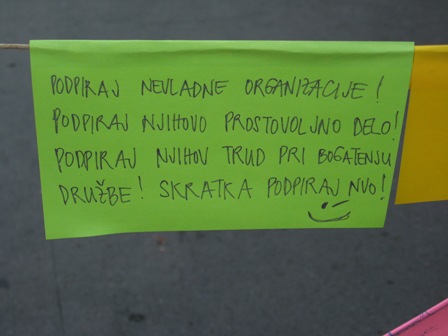 PODPIRAJ NEVLADNE ORGANIZACIJE!
PODPIRAJ NJIHOVO PROSTOVOLJNO DELO!
PODPIRAJ NJIHOV TRUD PRI BOGATENJU
DRUŽBE! SKRATKA PODPIRAJ NVO!